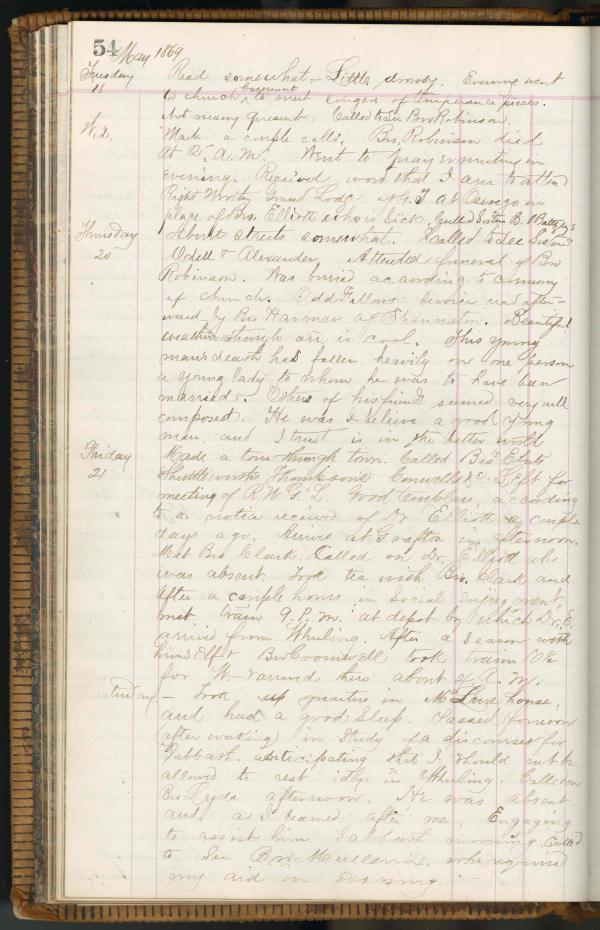 54 May 1869
Tuesday Read somewhat - Little drowsy. Evening went
18 to church basement to meet singers of temperance pieces.
Not many present. Called to see Bro Robinson.
Wed. Made a couple calls. Bro. Robinson died
at 2 A. M. Went to prayermeeting in
evening. Received word that I am to attend
Right Worthy Grand Lodge of G. T at Oswego in
place of Bro. Elliott who is sick. Called Sisten B.
Thursday About streets somewhat. Called to see Sisters
20 Odell & Alexander. Attended funeral of Bro
Robinson. Was buried according to ceremony
of church. Odd Fellows service read after-
ward by Bro Harman of Shinnston. Beautiful
weather though air is cool. This young
man's death has fallen heavily on one person
a young lady to whom he was to have been
married. Others of his friends seemed very well
composed. He was I believe a good young
man and I trust is in the better world
Friday Made a tour through town. Called Bro's Ebuts
21 Shuttleworths Thompsons &c. Left for
meeting of R. W. G. L. Good Templars, according
to a notice received of Dr Elliott a couple
days ago. Arrive at Grafton in afternoon.
Met Bro Clark. Called on Dr. Elliott who
was absent. Took tea with Bro. Clark and
after a couple hours in social enjoyment,
met train 9. P. M. at depot by which Dr. E.
arrived from Wheeling. After a season with
himself & Bro Cromwell took train 10½
for W- arrived here about 4 A. M.
Saturday - Took up quarters in McLure house,
and had a good sleep. Passed forenoon
(after waking) in study of a discourse for
Sabbath. anticipating that I should not be
allowed to rest idly in Wheeling. Called on
Bro Lyda afternoon. He was absent
and as I learned after me, Engaging
to assist him Sabbath morning. Called
to see Bro. who required
my aid in evening.